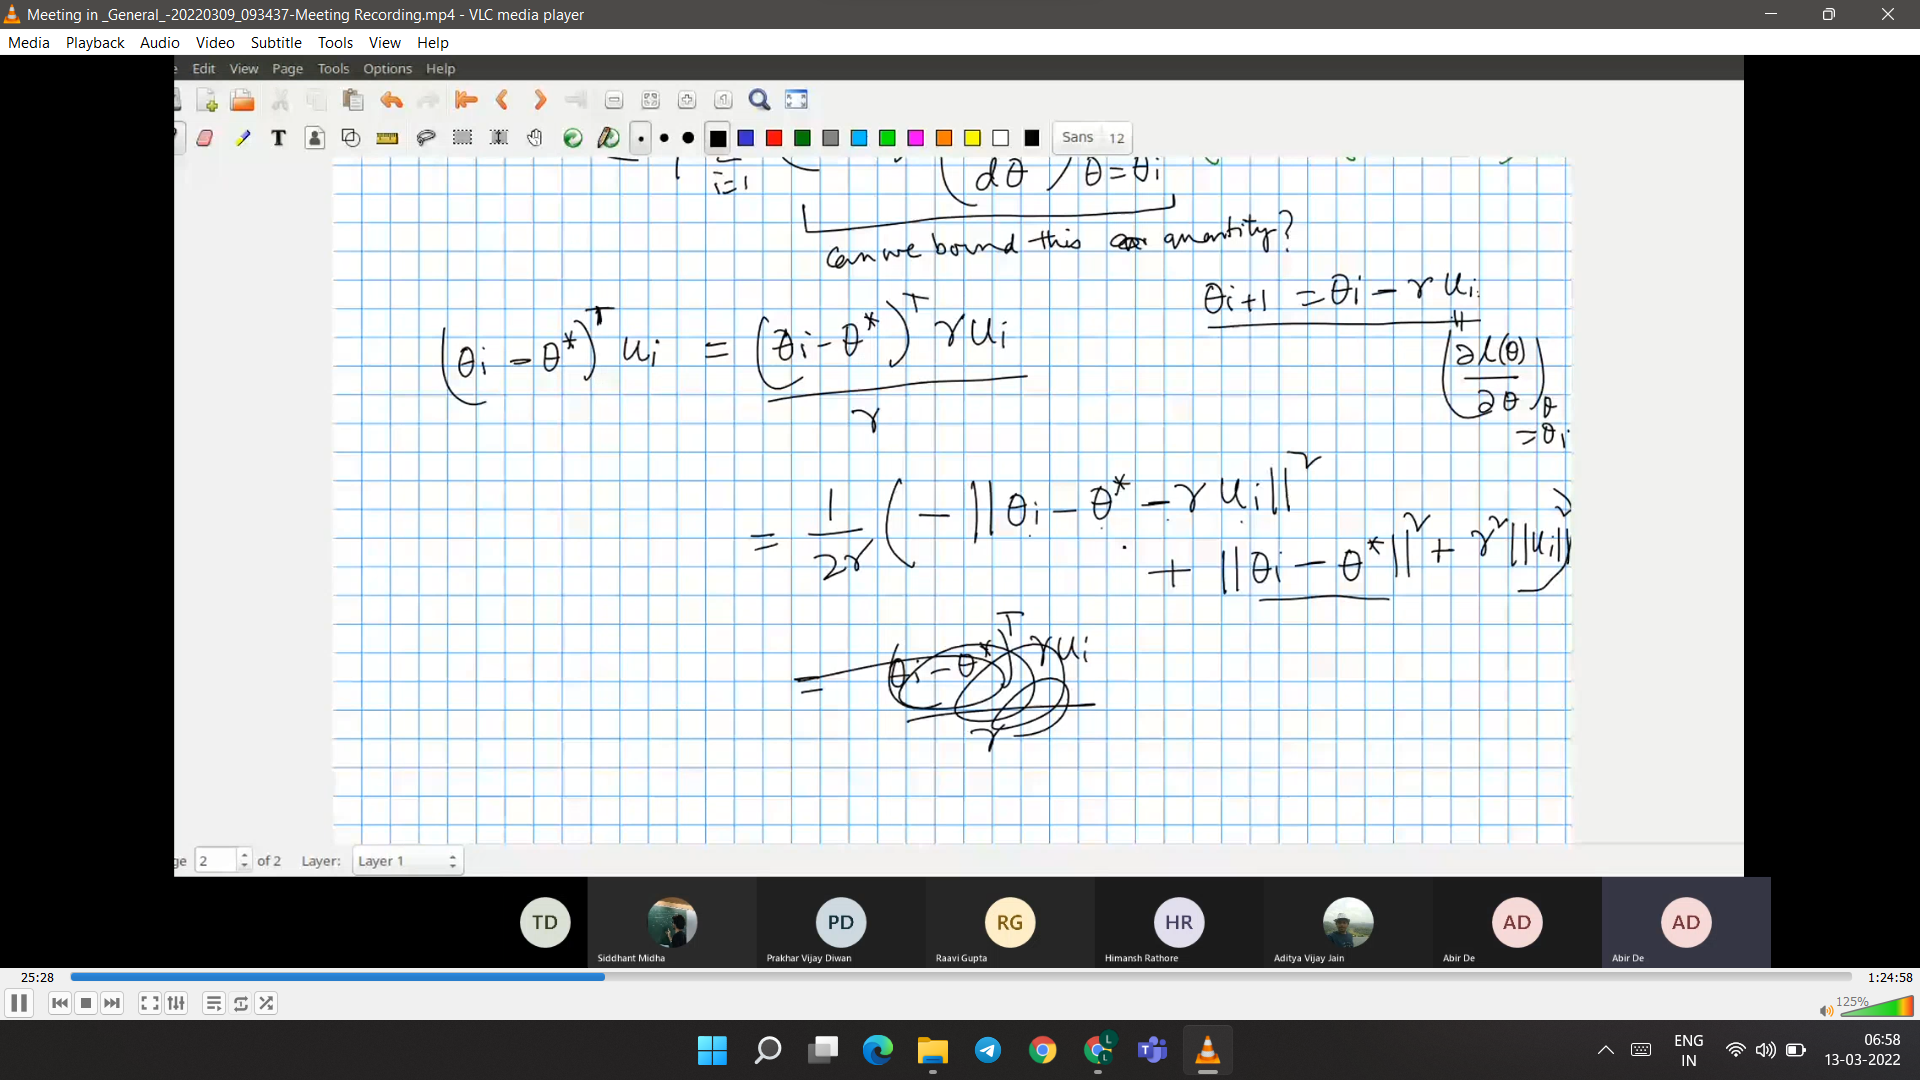 Meeting in _General_-20220309_093437-Meeting Recording.mp4 - VLC media player
Media Playback Audio Video Subtitle Tools View Help
Edit View Page Tools Options Help
Sans 12
i=1 dθ θ=θi
can we bound this quantity?
θi+1 = θi − γ ui
(θi − θ*)ᵀ ui = (θi − θ*)ᵀ γ ui
γ
(∂l(θ)
∂θ)θ
=θi
= 1/2γ ( − ||θi − θ* − γ ui||²
+ ||θi − θ*||² + γ² ||ui||²)
= (θi − θ*)ᵀ γ ui
γ
ge 2 of 2 Layer: Layer 1
TD PD RG HR AD AD
Siddhant Midha Prakhar Vijay Diwan Raavi Gupta Himansh Rathore Aditya Vijay Jain Abir De Abir De
25:28 1:24:58
125%
L L
ENG 06:58
IN 13-03-2022